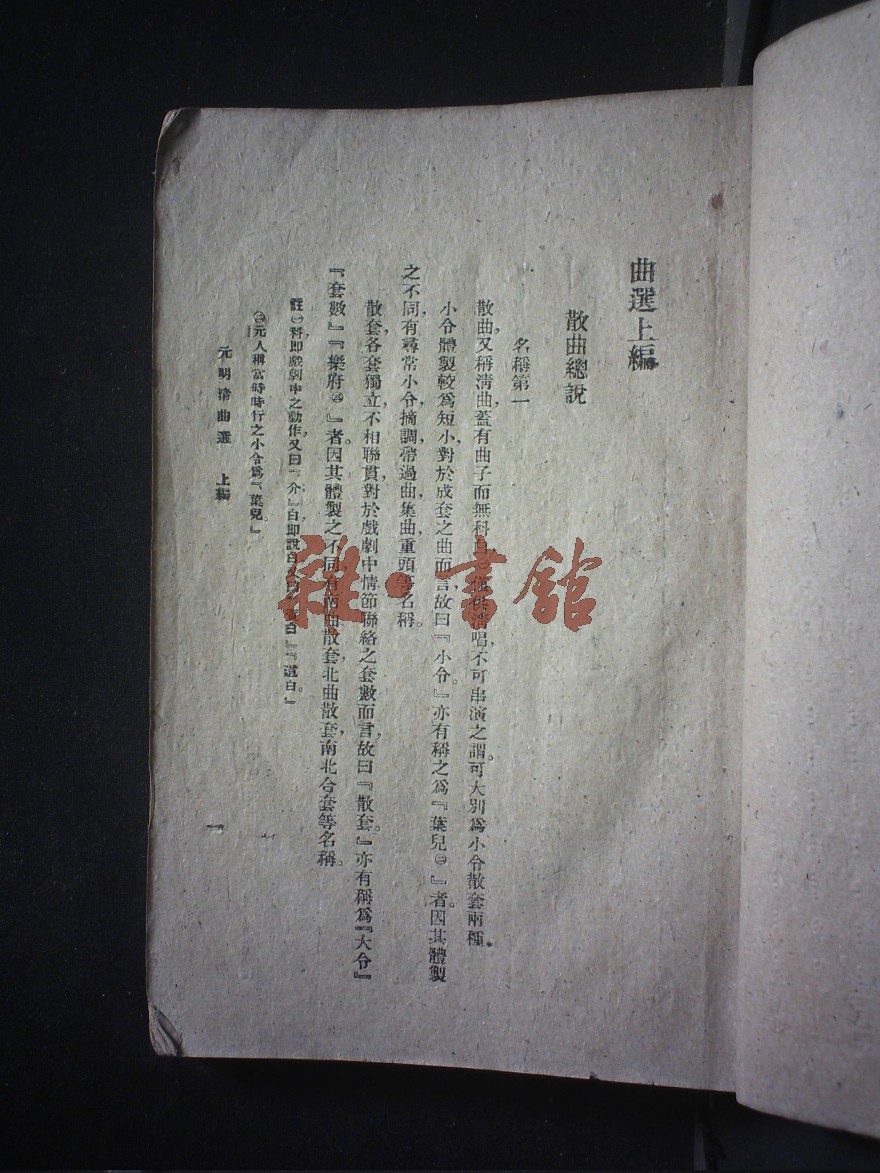 曲選上編
散曲總說
名稱第一
散曲,又稱淸曲,蓋有曲子而無科白㊀,僅供淸唱,不可串演之謂。可大別爲小令散套兩種。
小令體製較爲短小,對於成套之曲而言,故曰『小令。』亦有稱之爲『葉兒㊁』者。因其體製
之不同,有尋常小令,摘調,帶過曲,集曲,重頭等名稱。
散套,各套獨立,不相聯貫,對於戲劇中情節聯絡之套數而言,故曰『散套。』亦有稱爲『大令』
『套數』『樂府㊂』者。因其體製之不同,有南曲散套,北曲散套,南北合套等名稱。
註㊀科卽戲劇中之動作,又曰『介』白卽說白,又曰『賓白』『道白。』
㊁元人稱當時時行之小令爲『葉兒。』
元明淸曲選 上編
一
雜·書館